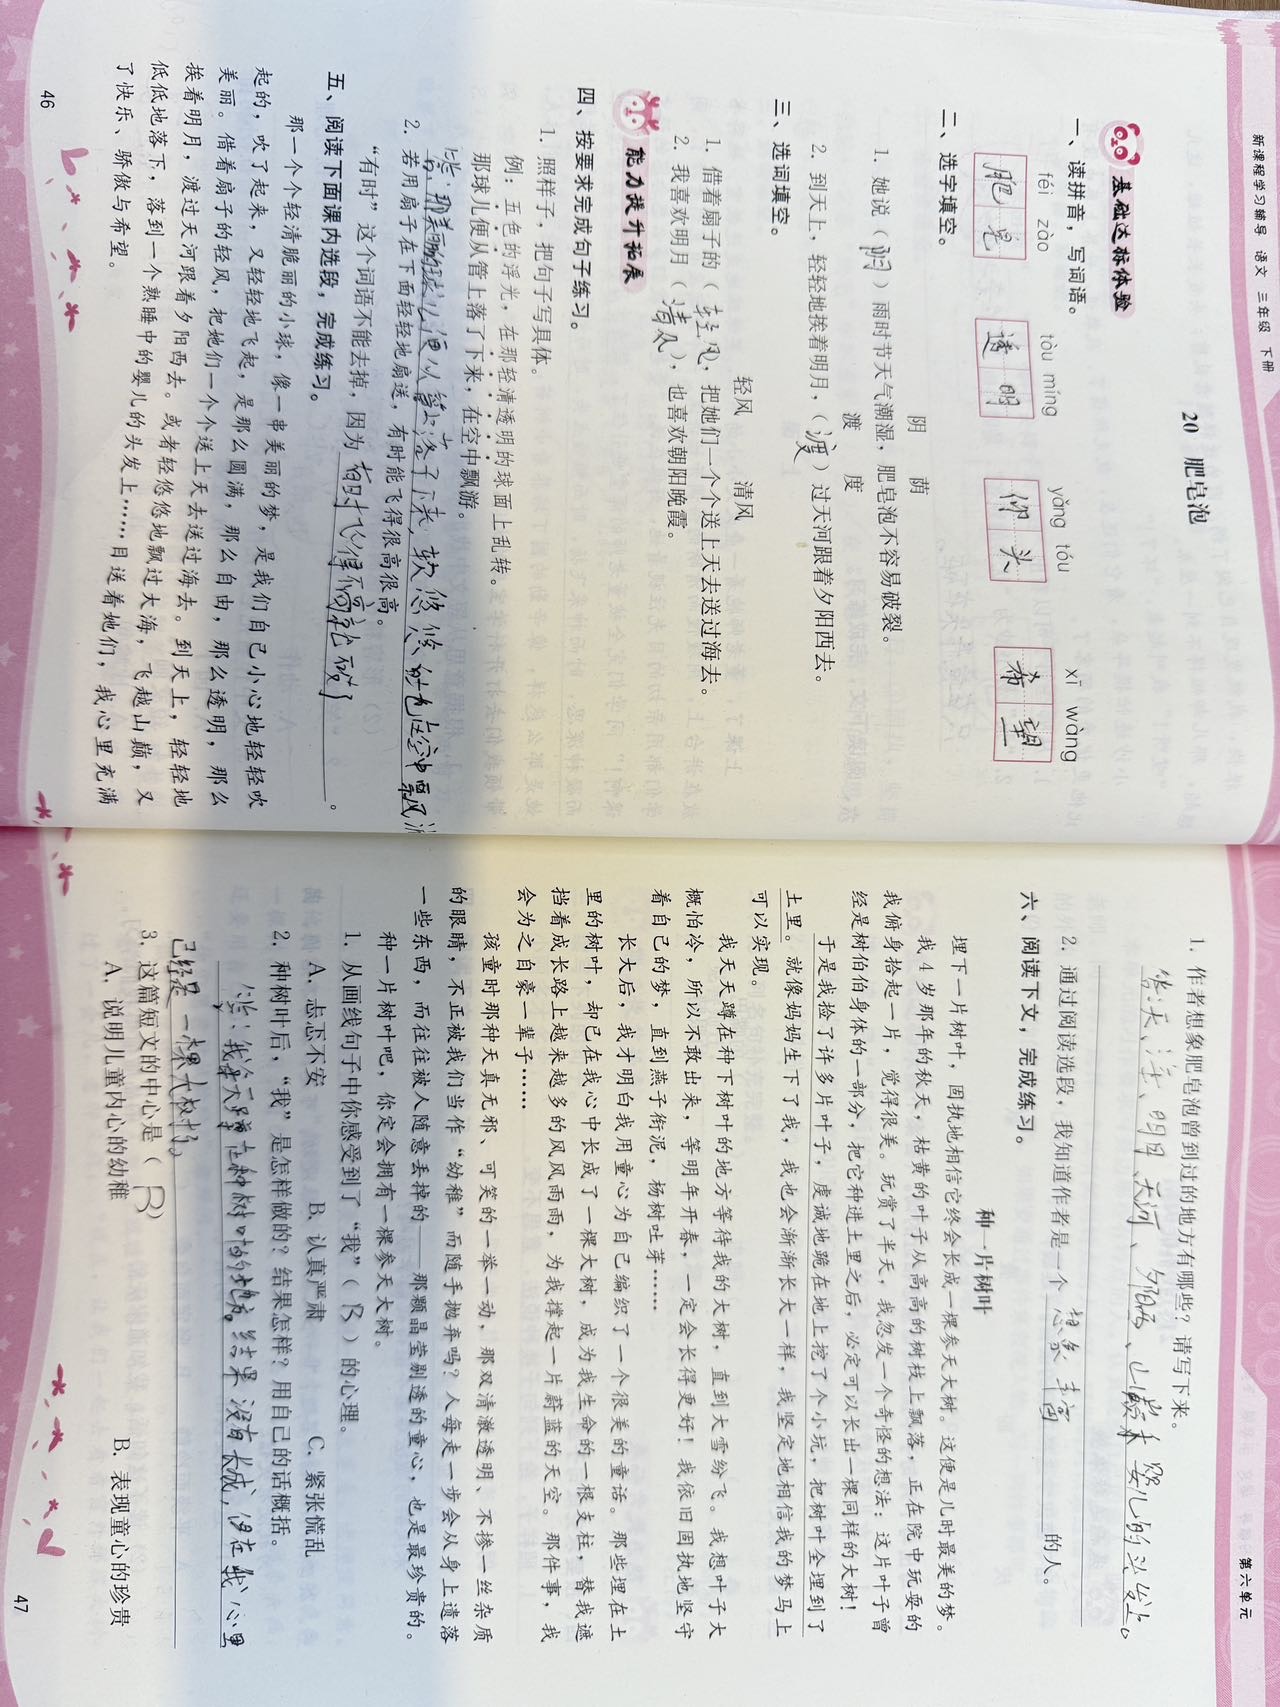 新课程学习辅导 语文 三年级 下册
20 肥皂泡
基础达标体验
一、读拼音，写词语。
féi zào tòu míng yǎng tóu xī wàng
肥皂 透明 仰头 希望
二、选字填空。
阴 荫
1. 她说（阴）雨时节天气潮湿，肥皂泡不容易破裂。
渡 度
2. 到天上，轻轻地挨着明月，（渡）过天河跟着夕阳西去。
三、选词填空。
轻风 清风
1. 借着扇子的（轻风），把她们一个个送上天去送过海去。
2. 我喜欢明月（清风），也喜欢朝阳晚霞。
能力提升拓展
四、按要求完成句子练习。
1. 照样子，把句子写具体。
例：五色的浮光，在那轻清透明的球面上乱转。
那球儿便从管上落了下来，在空中飘游。
答：那美丽的球儿便从管上落了下来，软悠悠地在空中飘游
2. 若用扇子在下面轻轻地扇送，有时能飞得很高很高。
“有时”这个词语不能去掉，因为有时飞得不高就破了。
五、阅读下面课内选段，完成练习。
那一个个轻清脆丽的小球，像一串美丽的梦，是我们自己小心地轻轻吹
起的，吹了起来，又轻轻地飞起，是那么圆满，那么自由，那么透明，那么
美丽。借着扇子的轻风，把她们一个个送上天去送过海去。到天上，轻轻地
挨着明月，渡过天河跟着夕阳西去。或者轻悠悠地飘过大海，飞越山巅，又
低低地落下，落到一个熟睡中的婴儿的头发上……目送着她们，我心里充满
了快乐、骄傲与希望。
46
第六单元
1. 作者想象肥皂泡曾到过的地方有哪些？请写下来。
答：天、海、明月、天河、夕阳西、山巅和婴儿的头发上。
2. 通过阅读选段，我知道作者是一个想象丰富的人。
六、阅读下文，完成练习。
种一片树叶
埋下一片树叶，固执地相信它终会长成一棵参天大树。这便是儿时最美的梦。
我4岁那年的秋天，枯黄的叶子从高高的树枝上飘落，正在院中玩耍的
我俯身拾起一片，觉得很美。玩赏了半天，我忽发一个奇怪的想法：这片叶子曾
经是树伯伯身体的一部分，把它种进土里之后，必定可以长出一棵同样的大树！
于是我捡了许多片叶子，虔诚地跪在地上挖了个小坑，把树叶全埋到了
土里。就像妈妈生下了我，我也会渐渐长大一样，我坚定地相信我的梦马上
可以实现。
我天天蹲在种下树叶的地方等待我的大树，直到大雪纷飞。我想叶子大
概怕冷，所以不敢出来，等明年开春，一定会长得更好！我依旧固执地坚守
着自己的梦，直到燕子衔泥，杨树吐芽……
长大后，我才明白我用童心为自己编织了一个很美的童话。那些埋在土
里的树叶，却已在我心中长成了一棵大树，成为我生命的一根支柱，替我遮
挡着成长路上越来越多的风风雨雨，为我撑起一片蔚蓝的天空。那件事，我
会为之自豪一辈子……
孩童时那种天真无邪、可笑的一举一动，那双清澈透明、不掺一丝杂质
的眼睛，不正被我们当作“幼稚”而随手抛弃吗？人每走一步会从身上遗落
一些东西，而往往被人随意丢掉的——那颗晶莹剔透的童心，也是最珍贵的。
种一片树叶吧，你定会拥有一棵参天大树。
1. 从画线句子中你感受到了“我”（B）的心理。
A. 忐忑不安 B. 认真严肃 C. 紧张慌乱
2. 种树叶后，“我”是怎样做的？结果怎样？用自己的话概括。
答：我天天蹲在种树叶的地方，结果没有长成，但在我心里
已经是一棵大树。
3. 这篇短文的中心是（B）
A. 说明儿童内心的幼稚 B. 表现童心的珍贵
47